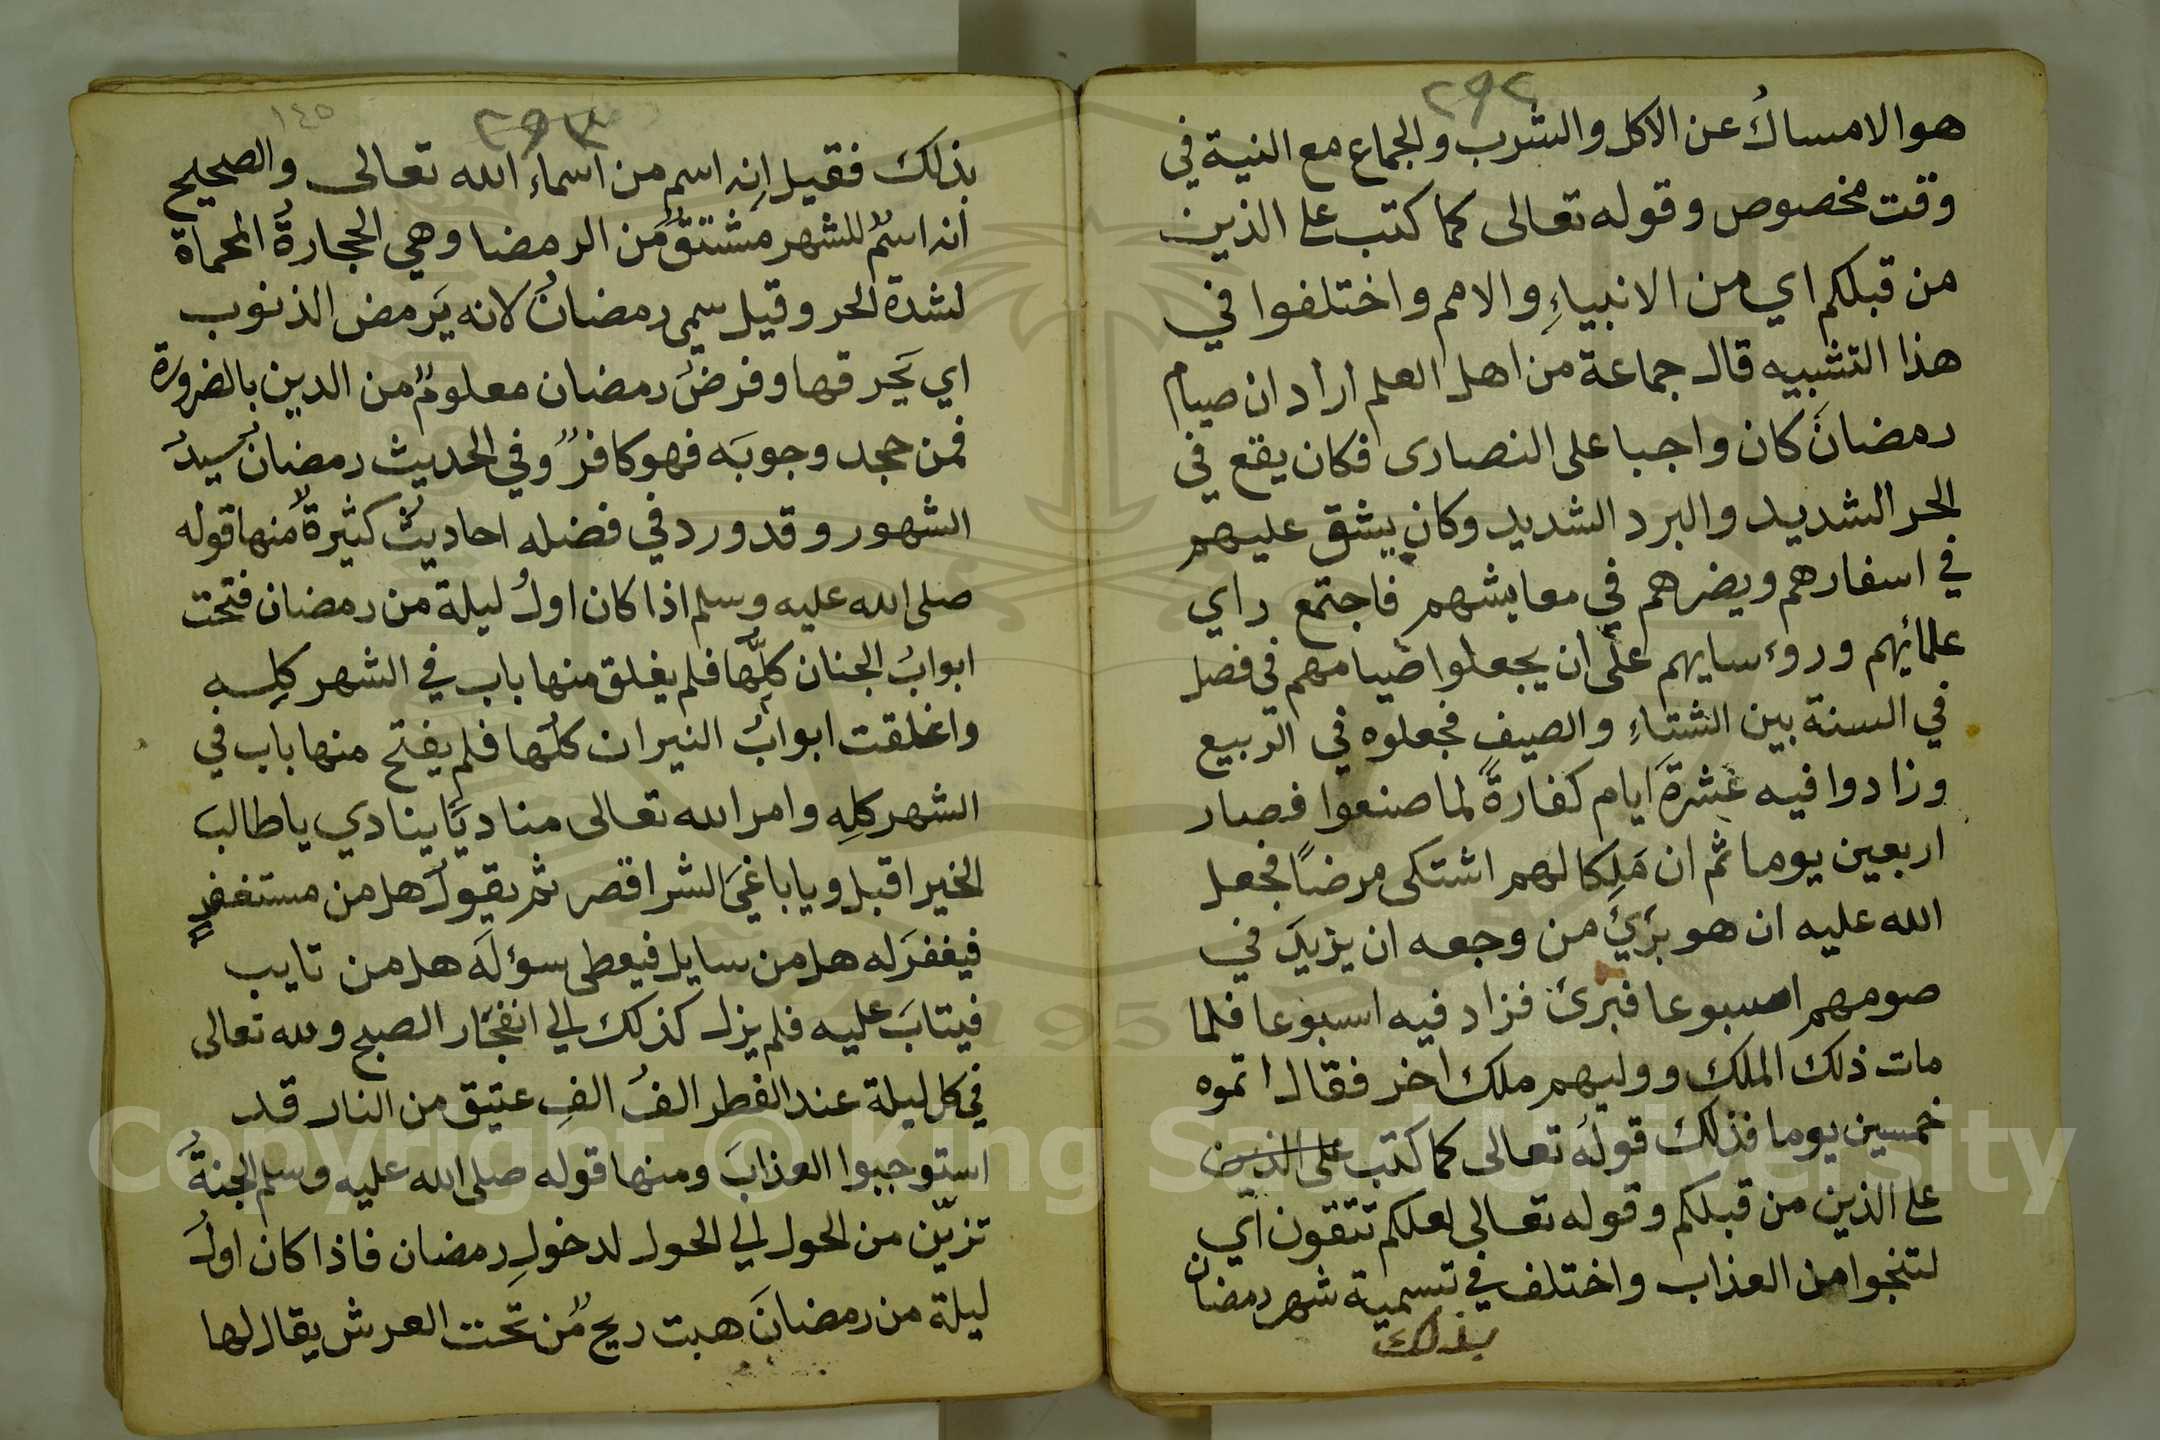 ٢٩٢
هو الامساكُ عن الاكل والشرب والجماع مع النية في
وقت مخصوص وقوله تعالى كما كتب على الذين
من قبلكم اي من الانبياءِ والامم واختلفوا في
هذا التشبيه قال جماعة من اهل العلم اراد ان صيام
رمضانَ كان واجبا على النصارى فكان يقع في
الحر الشديد والبرد الشديد وكان يشق عليهم
في اسفارهم ويضرهم في معايشهم فاجتمع راي
علمائهم وروءسايهم على ان يجعلوا صيامهم في فصل
في السنة بين الشتاءِ والصيف فجعلوه في الربيع
وزادوا فيه عَشرةَ ايام كفارةً لما صنعوا فصار
اربعين يوما ثم ان مَلِكا لهم اشتكى مرضًا فجعل
الله عليه ان هو بَرَئَ من وجعه ان يزيدَ في
صومهم اسبوعا فبرئ فزاد فيه اسبوعا فلما
مات ذلك الملك ووليهم ملك اخر فقال اتموه
خمسين يوما فذلك قولهُ تعالى كما كتب على الذين
على الذين من قبلكم وقوله تعالى لعلكم تتقون اي
لتنجوا من العذاب واختلف في تسمية شهر رمضان
بذلك
٢٩٣
١٤٥
بذلك فقيل اِنه اسم من اسماء الله تعالى والصحيح
انه اسمٌ للشهر مشتقٌ من الرمضا وهي الحجارةُ المحماة
لشدة الحر وقيل سمي رمضانُ لانه يَرمض الذنوب
اي يَحرقها وفرضُ رمضان معلومٌ من الدين بالضرورة
فمن جحد وجوبَه فهو كافرٌ وفي الحديث رمضانُ سيدُ
الشهور وقد ورد في فضله احاديثُ كثيرةٌ منها قوله
صلى الله عليه وسلم اذا كان اولُ ليلة من رمضان فتحت
ابوابُ الجنان كلِّهُا فلم يغلق منها باب في الشهر كلِه
واغلقت ابوابُ النيران كلُها فلم يفتح منها باب في
الشهر كلِه وامر الله تعالى مناديًا ينادي يا طالبَ
الخير اقبل ويا باغيَ الشر اقصر ثم يقولُ هل من مستغفرٍ
فيغفرَ له هل من سايل فيعطى سؤلَه هل من تايب
فيتابَ عليه فلم يزل كذلك الي انفجار الصبح ولله تعالى
في كل ليلة عند الفطر الفُ الفِ عتيق من النار قد
استوجبوا العذابَ ومنها قوله صلى الله عليه وسلم الجنةُ
تزيّن من الحول الي الحول لدخولِ رمضان فاذا كان اولُ
ليلة من رمضانَ هبت ريحٌ من تحت العرش يقال لها
Copyright © King Saud University